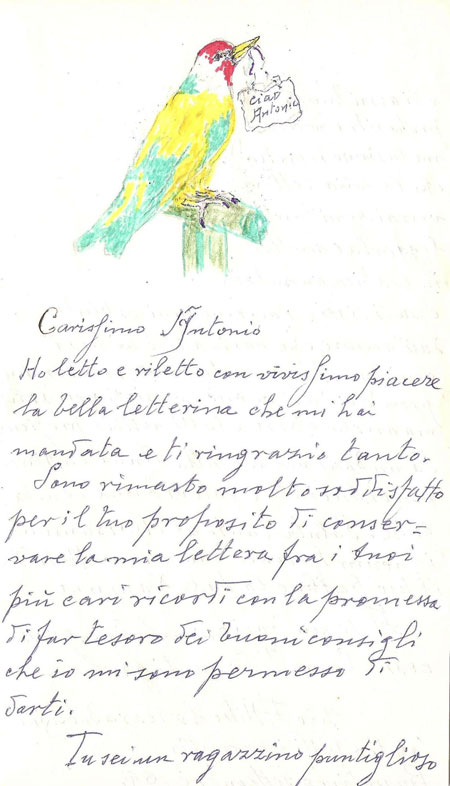 ciao
Antonio
Carissimo Antonio
Ho letto e riletto con vivissimo piacere
la bella letterina che mi hai
mandata e ti ringrazio tanto.
Sono rimasto molto soddisfatto
per il tuo proposito di conser=
vare la mia lettera fra i tuoi
più cari ricordi con la promessa
di far tesoro dei buoni consigli
che io mi sono permesso di
darti.
Tu sei un ragazzino puntiglioso